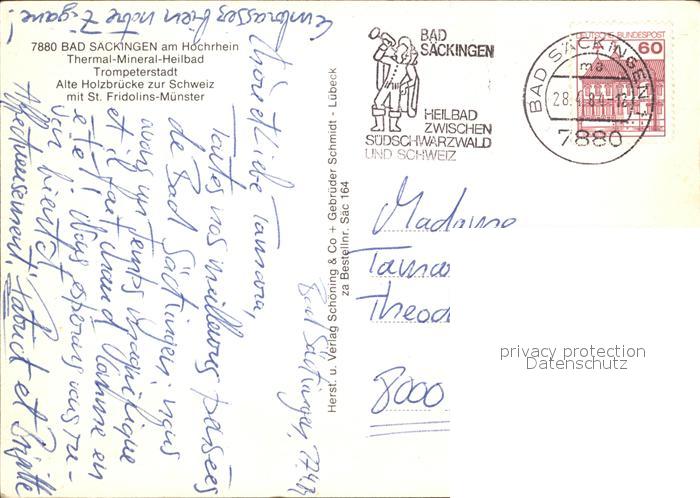 7880 BAD SÄCKINGEN am Hochrhein
Thermal-Mineral-Heilbad
Trompeterstadt
Alte Holzbrücke zur Schweiz
mit St. Fridolins-Münster
Herst. u. Verlag Schöning & Co + Gebrüder Schmidt - Lübeck
za Bestellnr. Säc 164
BAD
SÄCKINGEN
HEILBAD
ZWISCHEN
SÜDSCHWARZWALD
UND SCHWEIZ
BAD SÄCKINGEN 1
ma
28.4.84-12
7880
DEUTSCHE BUNDESPOST
60
Bad Säckingen,
Liebe Tamara,
Toutes nos meilleures pensées
de Bad Säckingen nous
avons un temps magnifique
et il fait chaud comme en
été! Nous espérons vous re-
voir bientôt
Affectueusement, Patrick et Brigitte
Embrassez bien notre Zigane!
Madame
Tamar
Theod
8000
privacy protection
Datenschutz